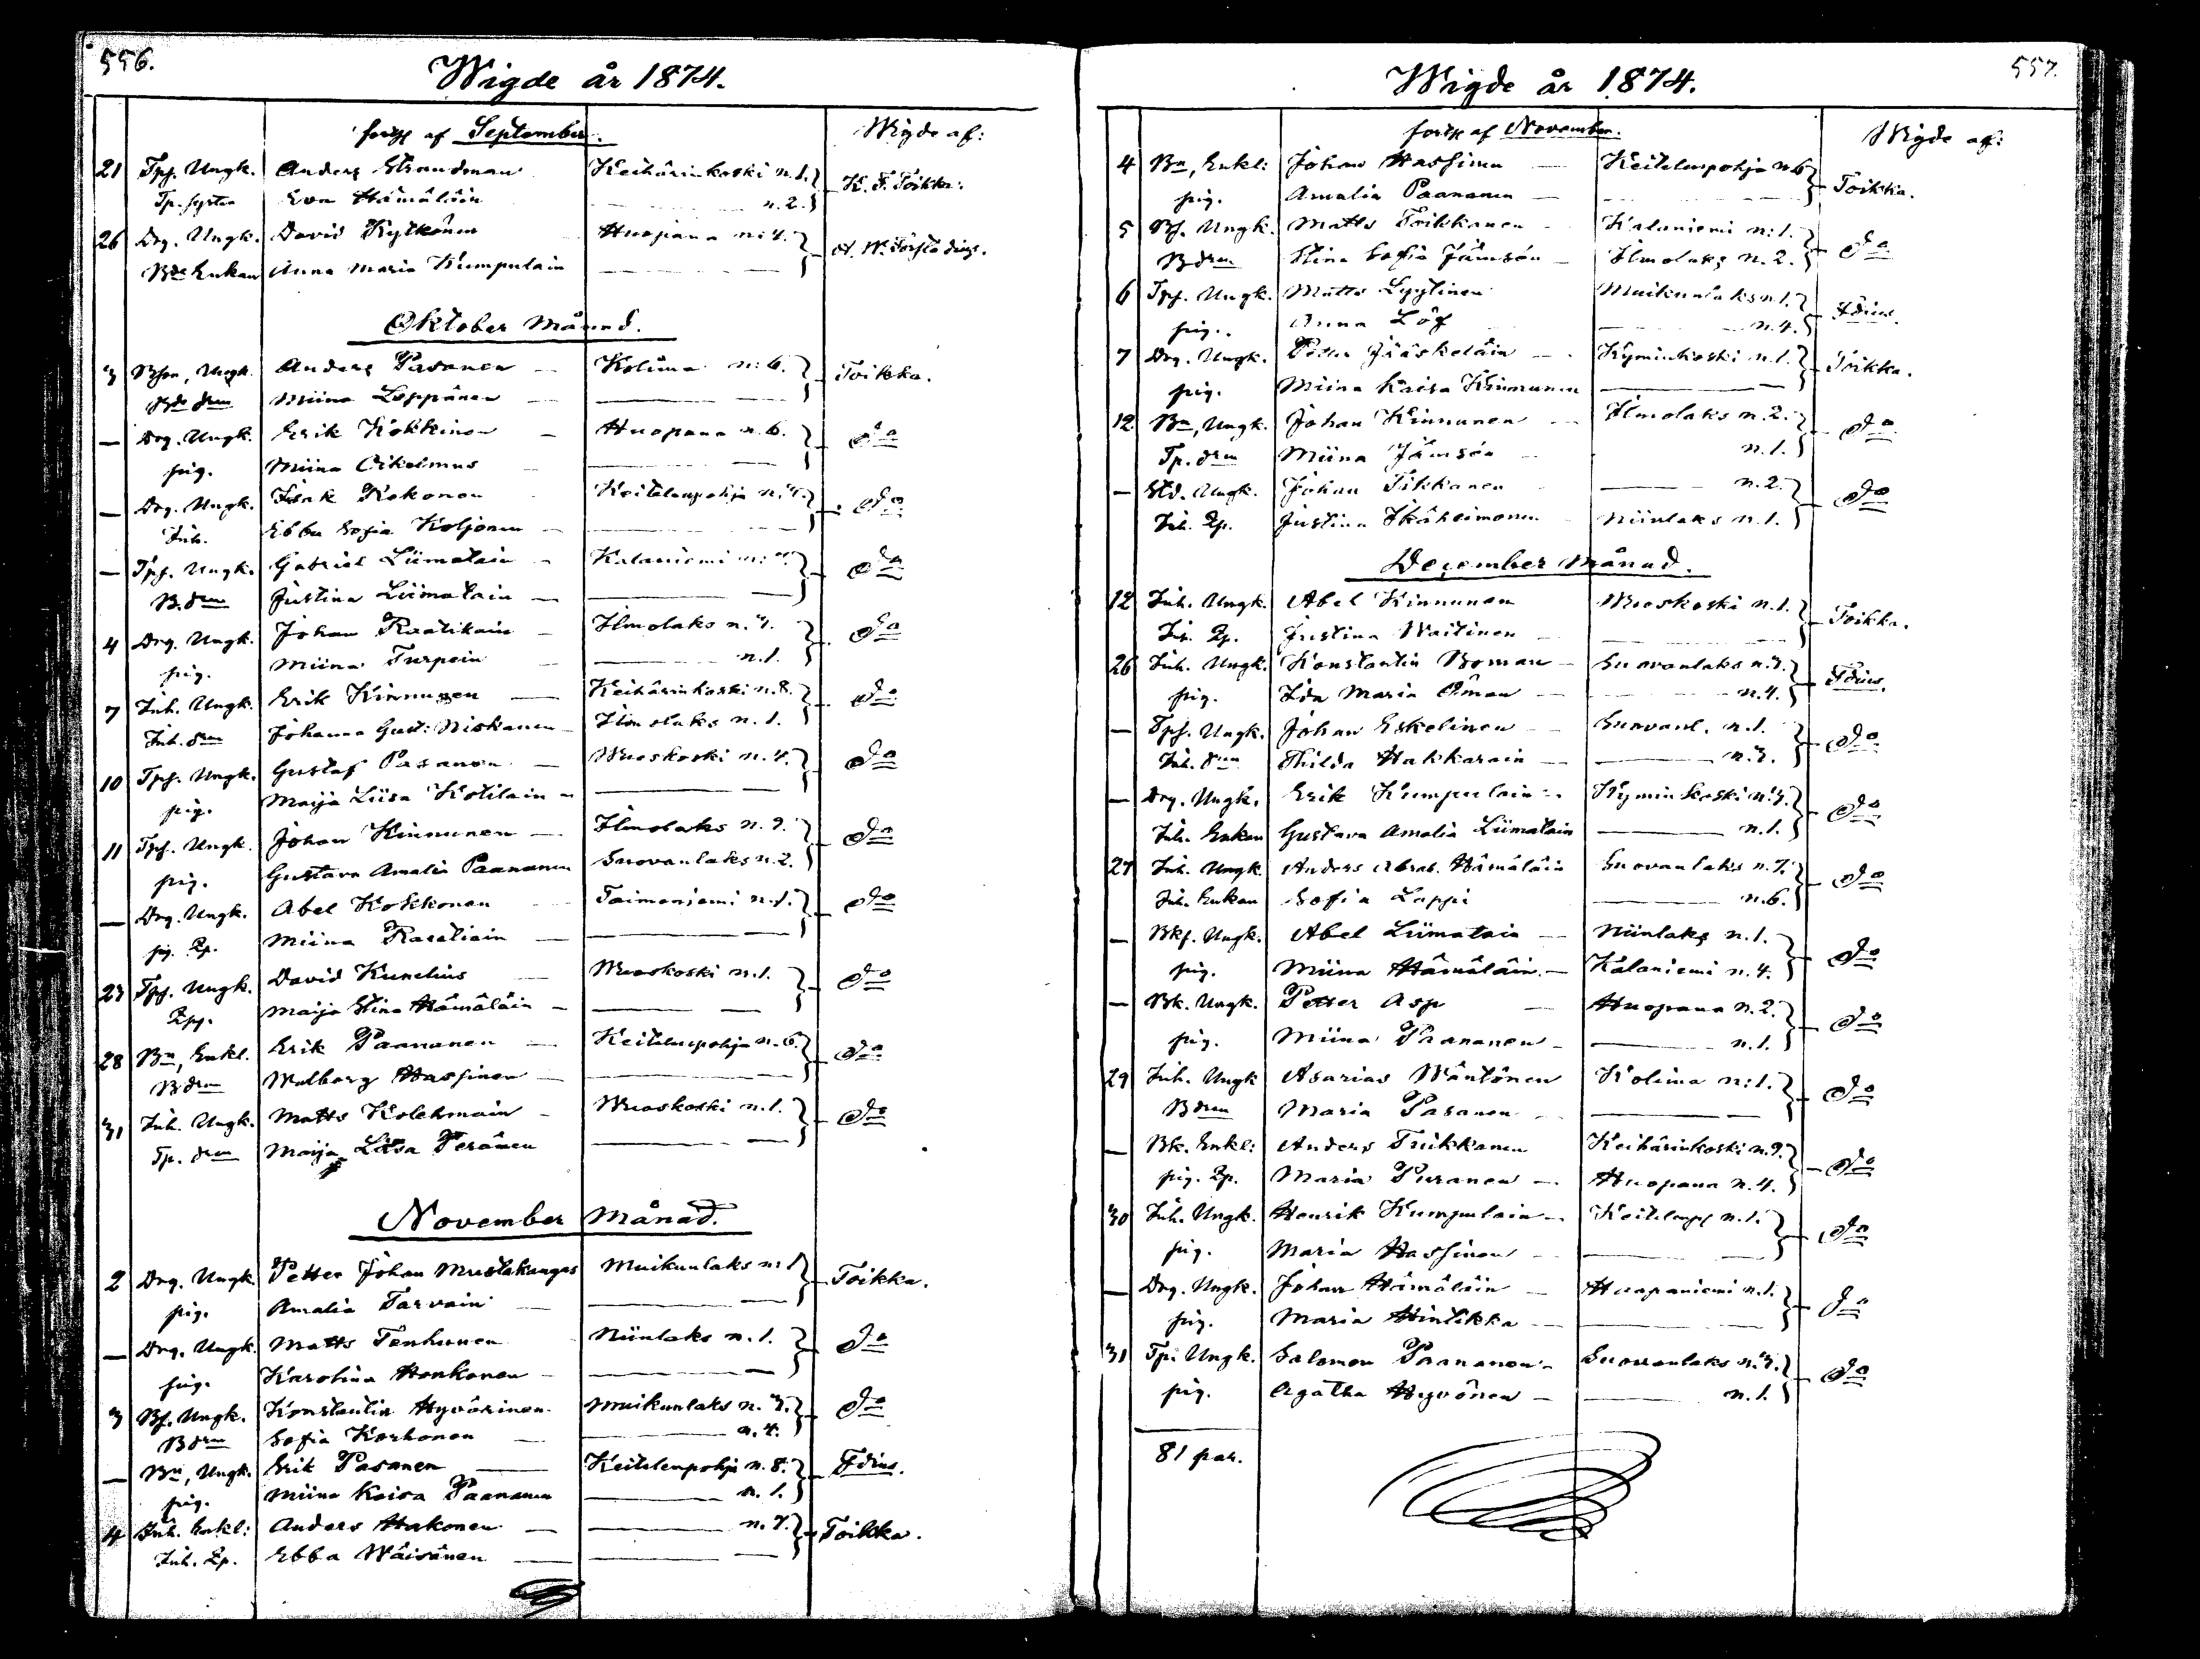 556.
Wigde år 1874.
forts af September.
Wigde af:
21 Tpf. Ungk. Anders Strandman Keihärinkoski n. 1.
Tp. syster Eva Hämäläin n. 2. K. F. Toikka.
26 Drg. Ungk. David Kytkönen Huopana n: 4.
Enkan Anna Maria Kumpulain
Oktober Månad.
3 Ungk. Anders Pasanen Kolima n: 6. Toikka.
drn Miina Leppänen
— Drg. Ungk. Erik Kokkinen Huopana n. 6. do
pig. Miina Oikeimus
— Drg. Ungk. Isak Kokonen Keitelenpohja n. 4. do
Inh. Ebba Sofia Koljonen
— Tpf. Ungk. Gabriel Liimatain Kalaniemi do
B. drn Justina Liimatain
4 Drg. Ungk. Johan Raatikain Ilmolaks n. 3. do
pig. Miina Turpein n. 1.
7 Inh. Ungk. Erik Kinnunen Keihärinkoski n. 8. do
Inh. drn Johanna Gust: Niskanen Ilmolaks n. 1.
10 Tpf. Ungk. Gustaf Pasanen Wuoskoski n. 4. do
pig. Maija Liisa Kotilain
11 Tpf. Ungk. Johan Kinnunen Ilmolaks n. 9. do
pig. Gustava Amalia Paananen Suovanlaks n. 2.
— Drg. Ungk. Abel Kokkonen Taimoniemi n. 1. do
pig. Qp. Miina Rasatiain
23 Tpf. Ungk. David Kunelius Wuoskoski n. 1. do
Qp. Maija Stina Hämäläin
28 Bn, Enkl. Erik Paananen Keitelenpohja n. 6. do
B drn Walborg Hassinen
31 Inh. Ungk. Matts Kolehmain Wuoskoski n. 1. do
Tp. drn Maija Liisa Peränen
November Månad.
2 Drg. Ungk. Petter Johan Mustakangas Muikunlaks n: 1 Toikka.
pig. Amalia Tarvain
— Drg. Ungk. Matts Tenhunen Niinlaks n. 1. do
pig. Karolina Honkonen
3 Bf. Ungk. Konstantin Hyvärinen Muikunlaks n. 3. do
B drn Sofia Korhonen n. 4.
— Bn, Ungk. Erik Pasanen Keitelenpohja n. 8. Fdius.
pig. Miina Kaisa Paananen n. 1.
4 Inh. Enkl: Anders Hakonen n. 7. Toikka.
Inh. Qp. Ebba Wäisänen
557.
Wigde år 1874.
forts af November.
Wigde af:
4 Bn, Enkl: Johan Hassinen Keitelenpohja n. 6 Toikka.
pig. Amalia Paananen
5 Bf. Ungk. Matts Toikkanen Kalaniemi n: 1. do
B drn Stina Sofia Jämsén Ilmolaks n. 2.
6 Tpf. Ungk. Matts Lyytinen Muikunlaks n. 1. Fdius.
pig. Anna Löf n. 4.
7 Drg. Ungk. Petter Jääskeläin Kyminkoski n. 1. Toikka.
pig. Miina Kaisa Kinnunen
12 Bn, Ungk. Johan Kinnunen Ilmolaks n. 2. do
Tp. drn Miina Jämsén n. 1.
— Ungk. Johan Tikkanen n. 2. do
Inh. Qp. Justina Ikäheimonen Niinlaks n. 1.
December Månad.
12 Inh. Ungk. Abel Kinnunen Wuoskoski n. 1. Toikka.
Inh. Qp. Justina Waitinen
26 Inh. Ungk. Konstantin Boman Suovanlaks n. 3. Fdius.
pig. Ida Maria Öman n. 4.
— Tpf. Ungk. Johan Eskelinen Suovanl. n. 1. do
Inh. drn Thilda Hakkarain n. 3.
— Drg. Ungk. Erik Kumpulain Kyminkoski n: 3. do
Inh. Enkan Gustava Amalia Liimatain n. 1.
27 Inh. Ungk. Anders Abrah. Hämäläin Suovanlaks n. 7. do
Inh. Enkan Sofia Lappi n. 6.
— Bkf. Ungk. Abel Liimatain Niinlaks n. 1. do
pig. Miina Hämäläin Kalaniemi n. 4.
— Bk. Ungk. Petter Asp Huopana n. 2. do
pig. Miina Paananen n. 1.
29 Inh. Ungk Asarias Wäntönen Kolima n: 1. do
B drn Maria Pasanen
— Bk. Enkl: Anders Tuikkanen Keihärinkoski n. 9. do
pig. Qp. Maria Puranen Huopana n. 4.
30 Inh. Ungk. Henrik Kumpulain Keitelenpf n. 1. do
pig. Maria Hassinen
— Drg. Ungk. Johan Hämäläin Huapaniemi n. 1. do
pig. Maria Hintikka
31 Tp. Ungk. Salomon Paananen Suovanlaks n. 3. do
pig. Agatha Hyvönen n. 1.
81 par.